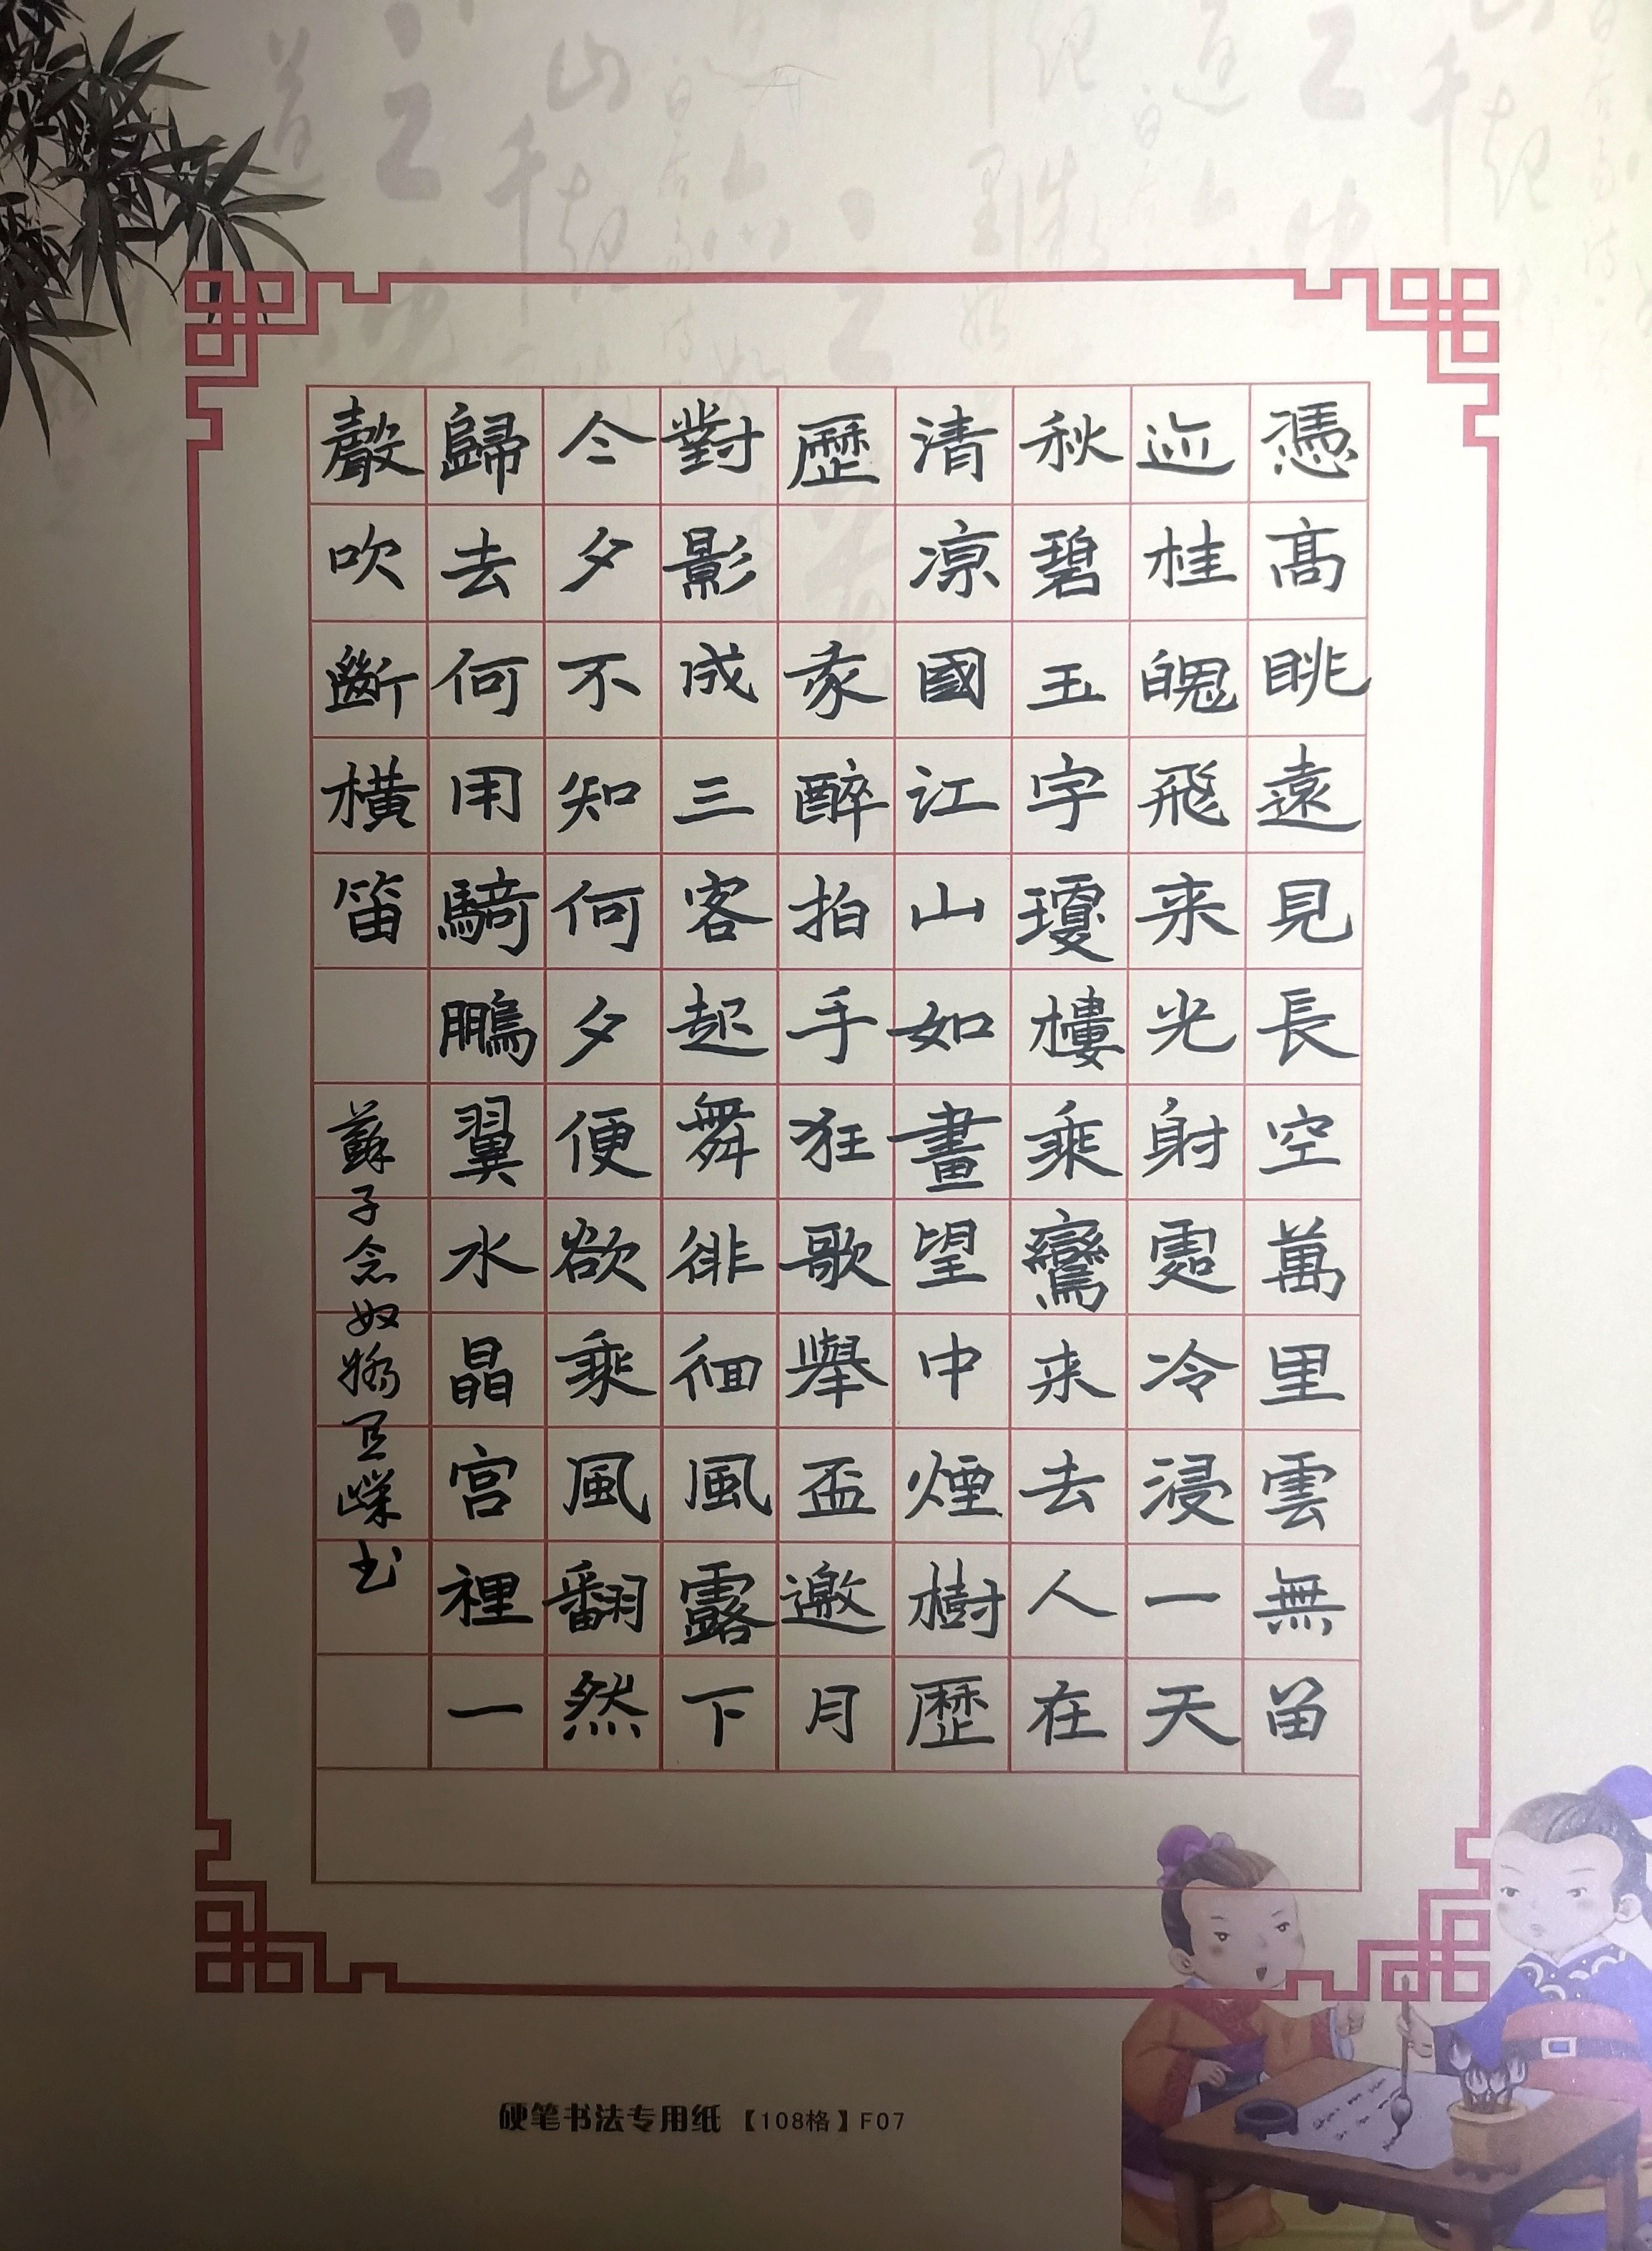 憑高眺遠見長空萬里雲無留
迹桂魄飛来光射處冷浸一天
秋碧玉宇瓊樓乘鸞来去人在
清凉國江山如畫望中煙樹歷
歷 我醉拍手狂歌舉盃邀月
對影成三客起舞徘徊風露下
今夕不知何夕便欲乘風翻然
歸去何用騎鵬翼水晶宫裡一
聲吹斷橫笛
蘇子念奴嬌 书
硬笔书法专用纸【108格】F07